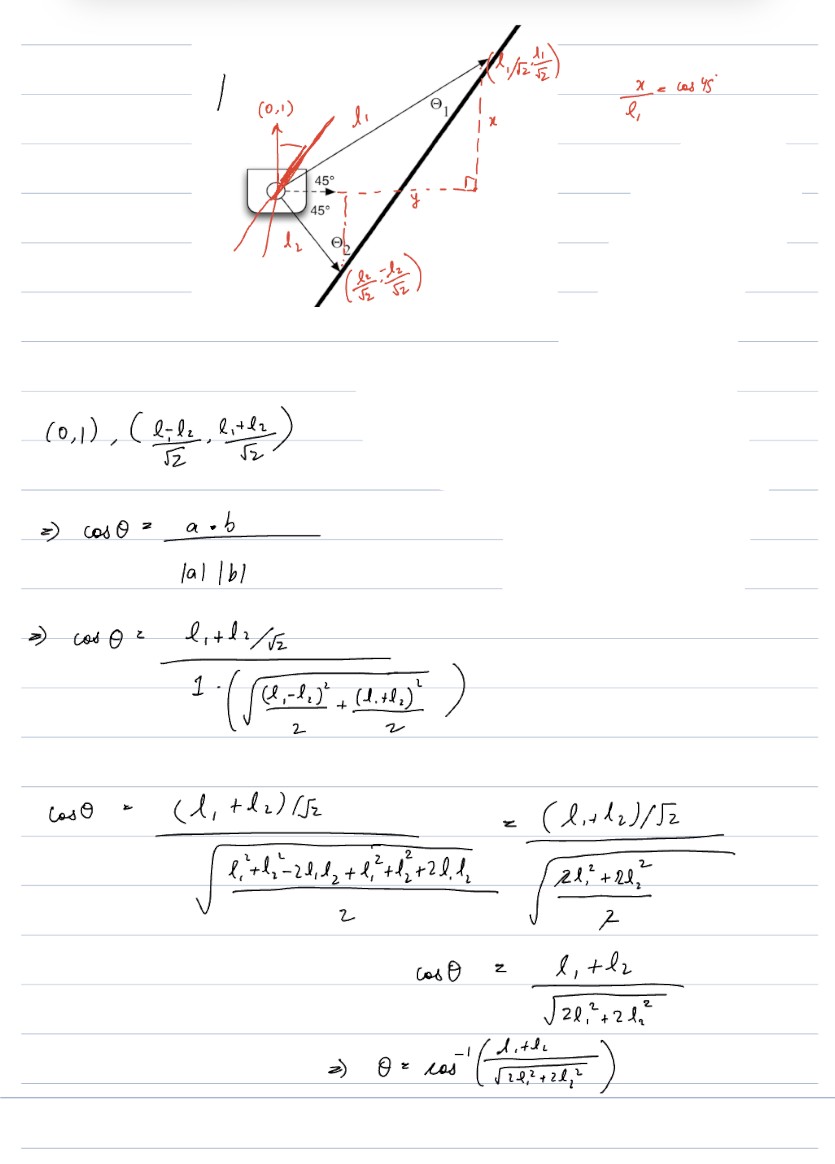 (l₁/√2, l₁/√2)
x/l₁ = cos 45°
(0,1)
l₁
Θ₁
x
45°
45°
y
l₂
Θ₂
(l₂/√2, -l₂/√2)
(0,1), ((l₁-l₂)/√2, (l₁+l₂)/√2)
=> cos θ = a · b / |a| |b|
=> cos θ = l₁+l₂/√2 / 1 · (√((l₁-l₂)²/2 + (l₁+l₂)²/2))
cos θ = (l₁+l₂)/√2 / √((l₁²+l₂²-2l₁l₂+l₁²+l₂²+2l₁l₂)/2) = (l₁+l₂)/√2 / √((2l₁²+2l₂²)/2)
cos θ = l₁+l₂ / √(2l₁²+2l₂²)
=> θ = cos⁻¹(l₁+l₂ / √(2l₁²+2l₂²))